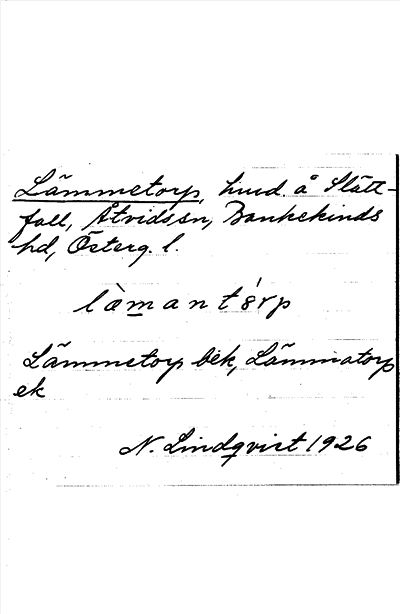 Lämmetorp, hmd. å Slätt-
fall, Åtvids sn, Bankekinds
hd, Österg. l.
Lämmetorp bek, Lämmatorp
ek
N. Lindqvist 1926